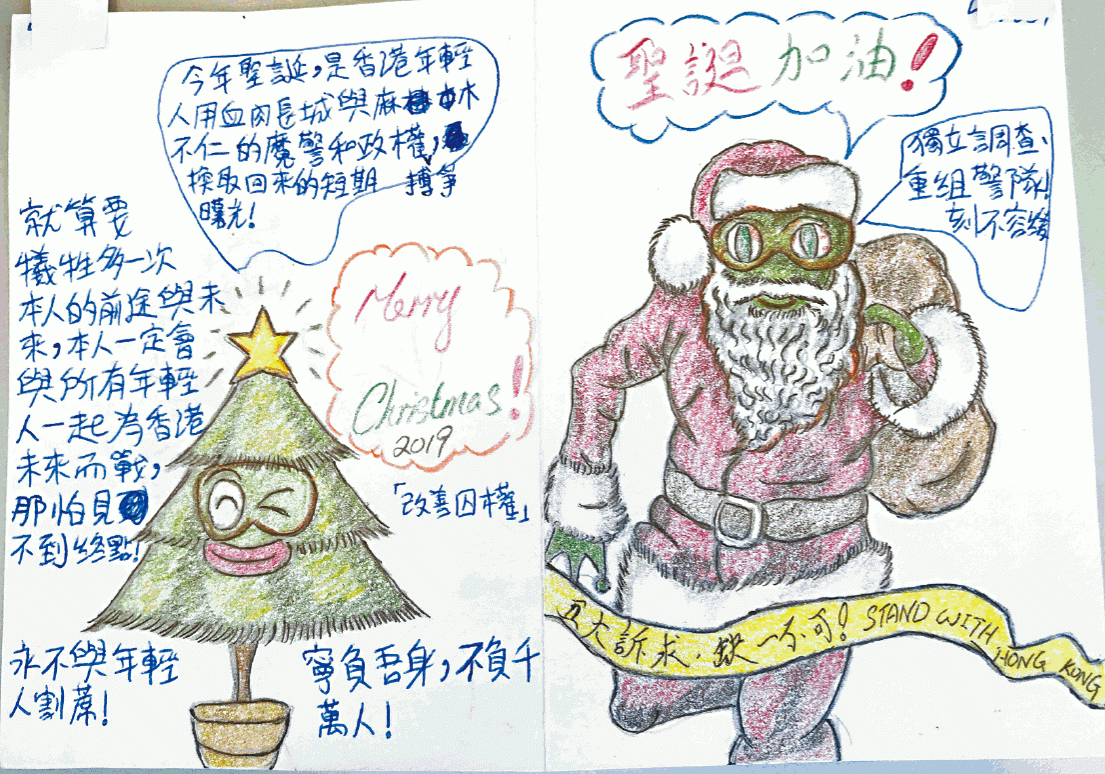 今年聖誕,是香港年輕
人用血肉長城與麻木
不仁的魔警和政權,搏爭
換取回來的短期
曙光!
就算要
犧牲多一次
本人的前途與未
來,本人一定會
與所有年輕
人一起為香港
未來而戰,
那怕見
不到終點!
Merry
Christmas!
2019
「改善囚權」
永不與年輕
人割蓆!
寧負吾身,不負千
萬人!
聖誕加油!
獨立調查、
重組警隊!
刻不容緩
五大訴求,缺一不可! STAND WITH HONG KONG